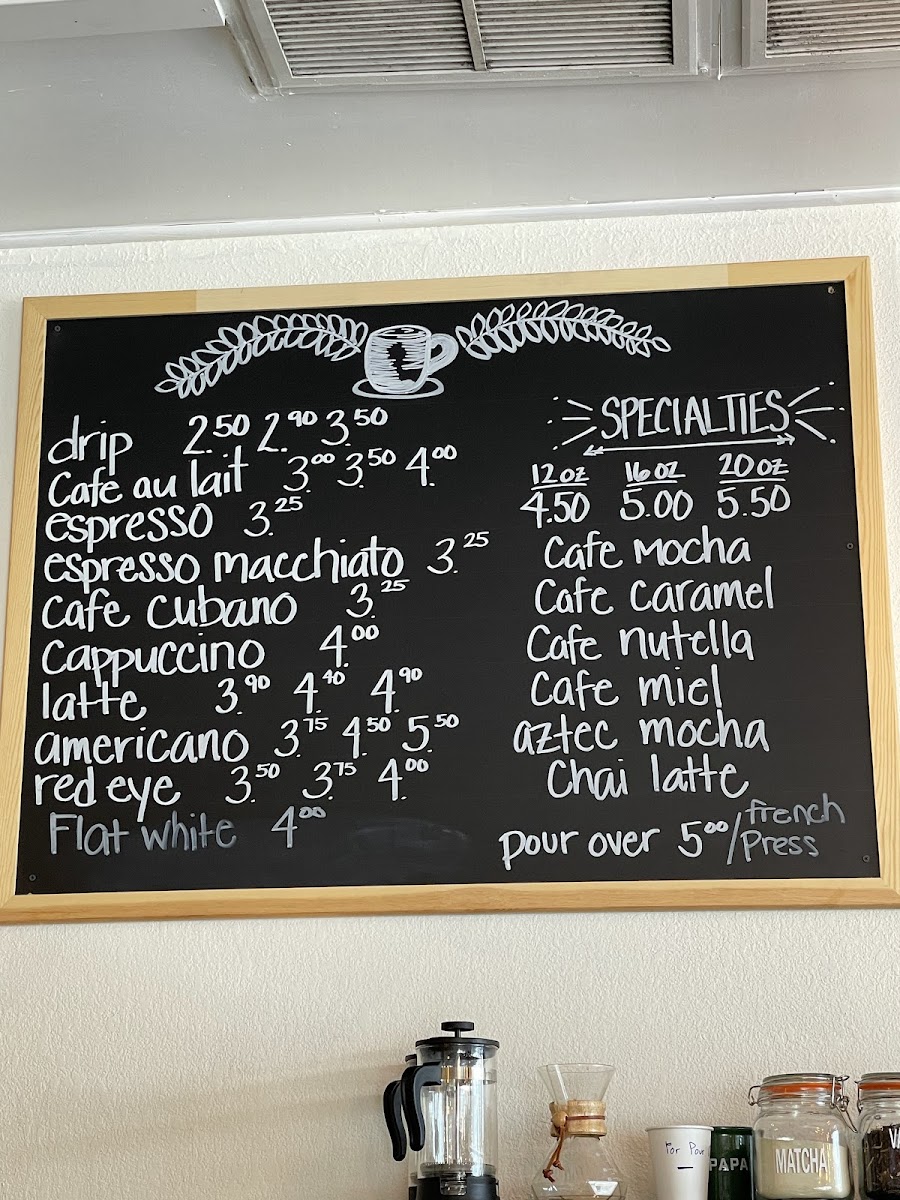 drip 2.50 2.90 3.50
Cafe au lait 3.00 3.50 4.00
espresso 3.25
espresso macchiato 3.25
Cafe cubano 3.25
Cappuccino 4.00
latte 3.90 4.40 4.90
americano 3.75 4.50 5.50
red eye 3.50 3.75 4.00
Flat white 4.00
SPECIALTIES
12 oz 16 oz 20 oz
4.50 5.00 5.50
Cafe Mocha
Cafe Caramel
Cafe nutella
Cafe miel
aztec mocha
Chai latte
pour over 5.00/french Press
For
PAPA
MATCHA